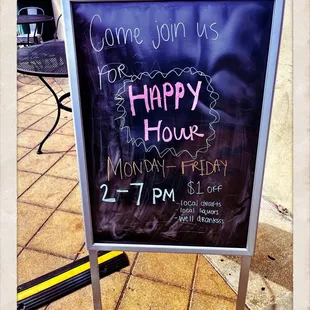 Come join us
FOR
HAPPY
HOUR
MONDAY - FRIDAY
2-7 PM $1 off
- local drafts
- local liquors
- well drankss